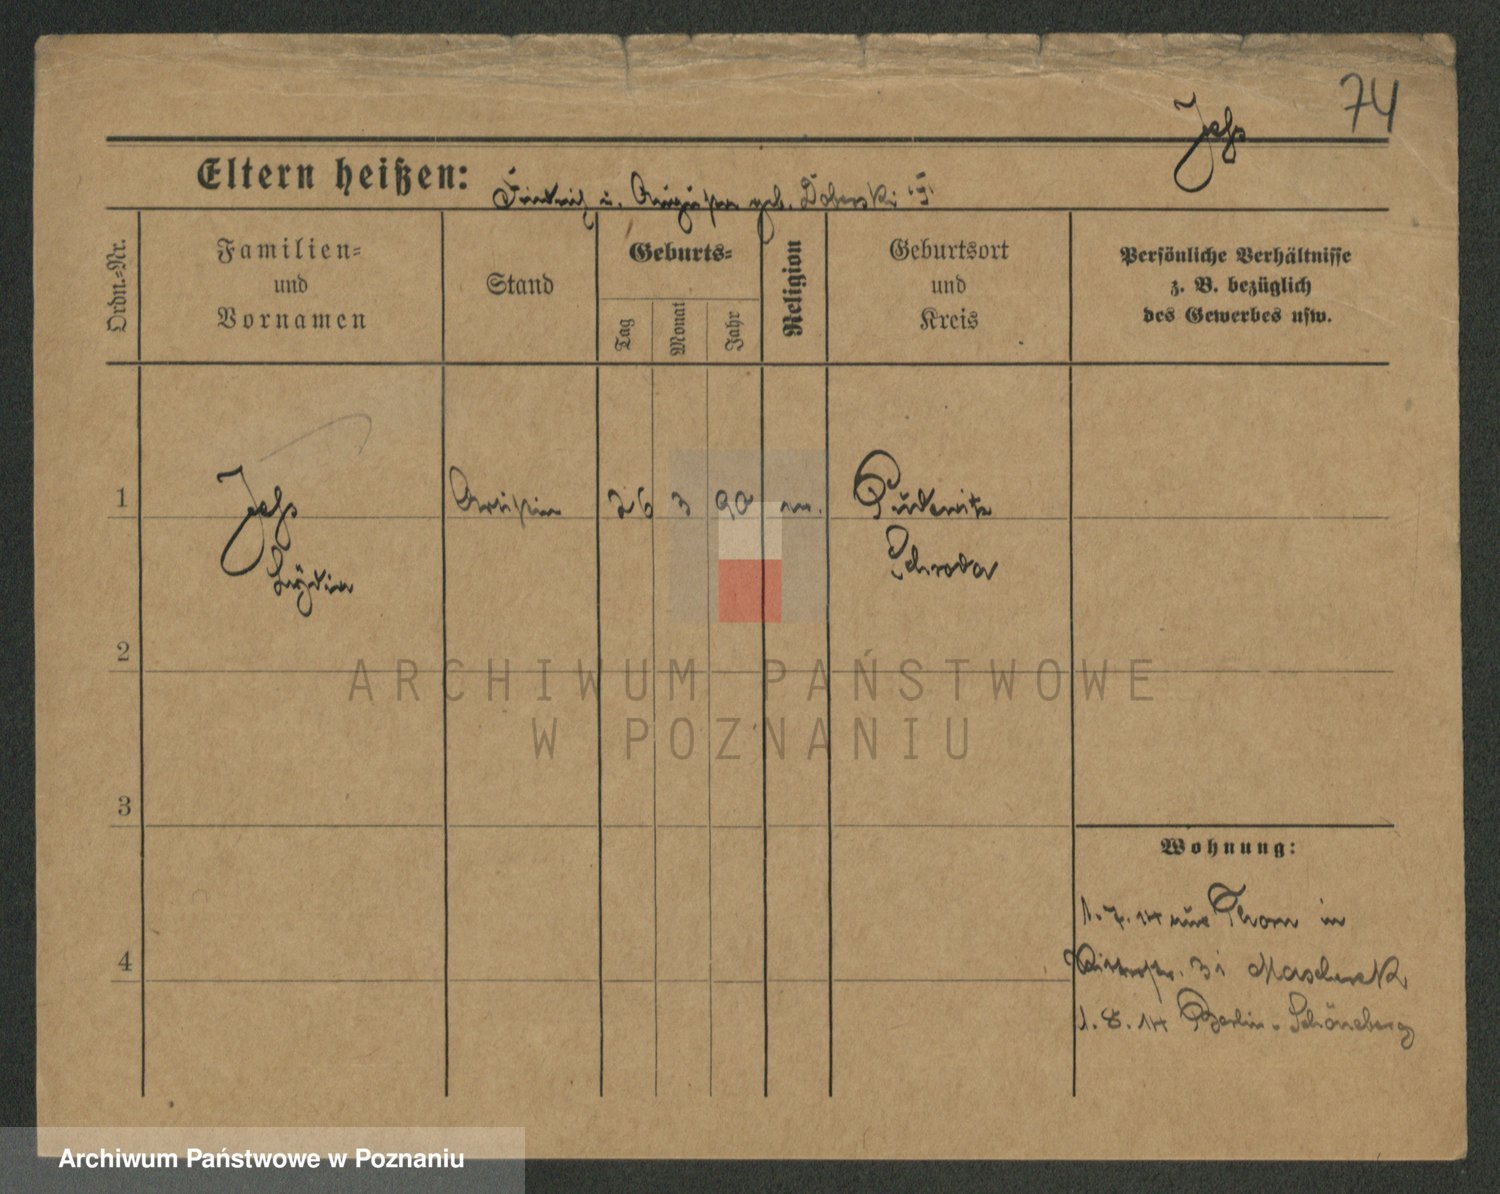 74
Jahs
Eltern heißen: Friedrich u. Auguste geb. Doberski
Ordn.-Nr.
Familien-
und
Vornamen
Stand
Geburts-
Tag
Monat
Jahr
Religion
Geburtsort
und
Kreis
Persönliche Verhältnisse
z. B. bezüglich
des Gewerbes usw.
1 26 3 90 Pudewitz
Lydia Schroda
2
3
4
Wohnung:
1.7.14 aus Thorn in
31
1.8.14 Berlin-Schöneberg
ARCHIWUM PAŃSTWOWE
W POZNANIU
Archiwum Państwowe w Poznaniu